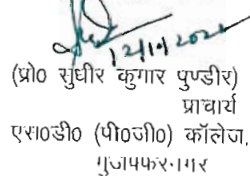 (प्रो० सुधीर कुमार पुण्डीर)
प्राचार्य
एस०डी० (पी०जी०) कॉलेज,
मुजफ्फरनगर